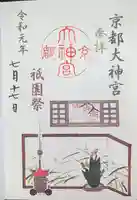 京都大神宮
奉拝
大神宮
祇園祭
令和元年
七月十七日